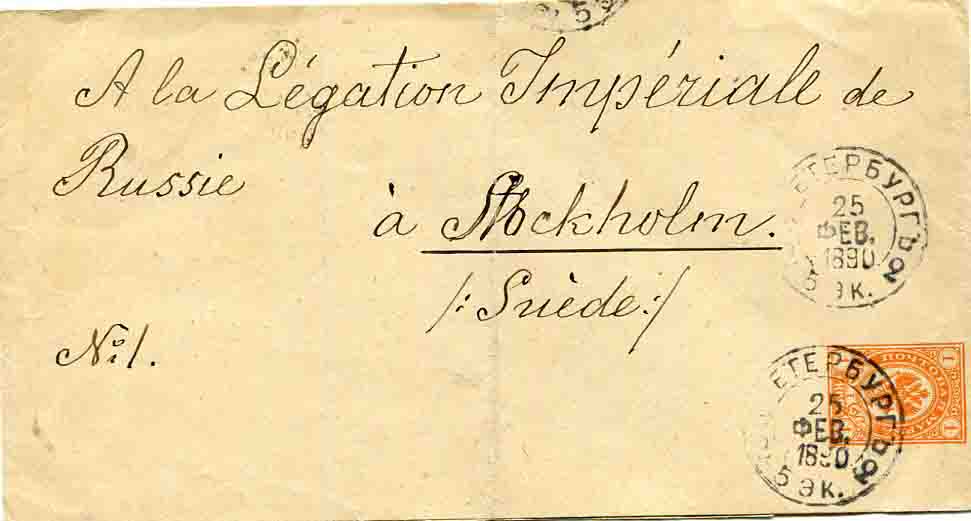 A la Légation Impériale de
Russie
à Stockholm.
/: Suède :/
№ 1.
ЕТЕРБУРГЪ 2
25
ФЕВ.
1890
5 ЭК.
ЕТЕРБУРГЪ 2
25
ФЕВ.
1890
5 ЭК.
1
ПОЧТОВАЯ МАР
1